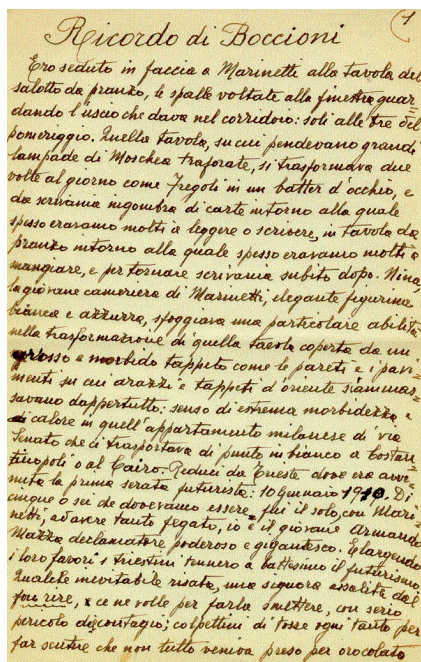 1
Ricordo di Boccioni
Ero seduto in faccia a Marinetti alla tavola del
salotto da pranzo, le spalle voltate alla finestra guar=
dando l'uscio che dava nel corridoio: soli alle tre del
pomeriggio. Quella tavola, su cui pendevano grandi
lampade di Moschea traforate, si trasformava due
volte al giorno come Fregoli in un batter d'occhio, e
da scrivania ingombra di carte intorno alla quale
spesso eravamo molti a leggere o scrivere, in tavola da
pranzo intorno alla quale spesso eravamo molti a
mangiare, e per tornare scrivania subito dopo. Nina,
la giovane cameriera di Marinetti, elegante figurina
bianca e azzurra, sfoggiava una particolare abilità
nella trasformazione di quella tavola coperta da un
grosso e morbido tappeto come le pareti e i pavi=
menti su cui arazzi e tappeti d'oriente s'ammas=
savano dappertutto: senso di estrema morbidezza e
di calore in quell'appartamento milanese di via
Senato che ti trasportava di punto in bianco a Costan=
tinopoli o al Cairo. Reduci da Trieste dove era avve=
nuta la prima serata futurista: 10 Gennaio 1910. Di
cinque o sei che dovevamo essere, fui il solo, con Mari=
netti, ad avere tanto fegato, io e il giovane Armando
Mazza declamatore poderoso e gigantesco. Elargendo
i loro favori i triestini tennero a battesimo il futurismo.
Qualche inevitabile risata, una signora assalita dal
fou rire, ce ne volle per farla smettere, con serio
pericolo di contagio; colpettini di tosse ogni tanto per
far sentire che non tutto veniva preso per orocolato